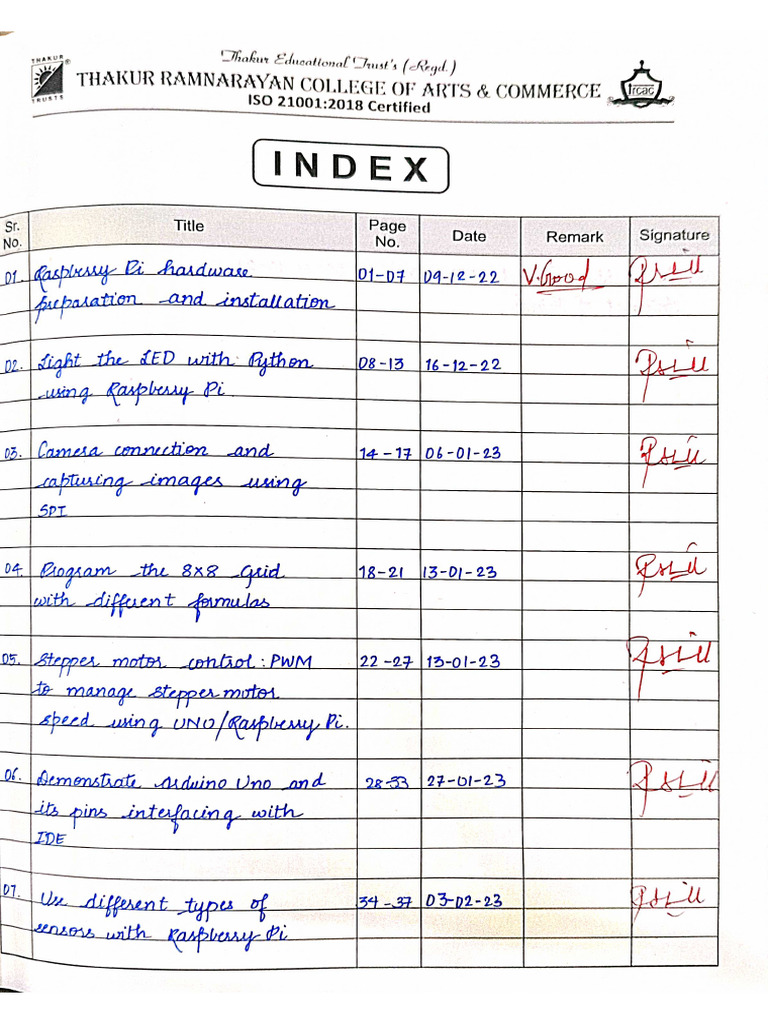 Thakur Educational Trust's (Regd.)
THAKUR
TRUSTS
THAKUR RAMNARAYAN COLLEGE OF ARTS & COMMERCE
trcac
ISO 21001:2018 Certified
INDEX
Sr. No. Title Page No. Date Remark Signature
01. Raspberry Pi hardware 01-07 09-12-22 V.Good
preparation and installation
02. Light the LED with Python 08-13 16-12-22
using Raspberry Pi
03. Camera connection and 14-17 06-01-23
capturing images using
SPI
04. Program the 8x8 Grid 18-21 13-01-23
with different formulas
05. Stepper motor control: PWM 22-27 13-01-23
to manage stepper motor
speed using UNO/Raspberry Pi.
06. Demonstrate Arduino Uno and 28-33 27-01-23
its pins interfacing with
IDE
07. Use different types of 34-37 03-02-23
sensors with Raspberry Pi